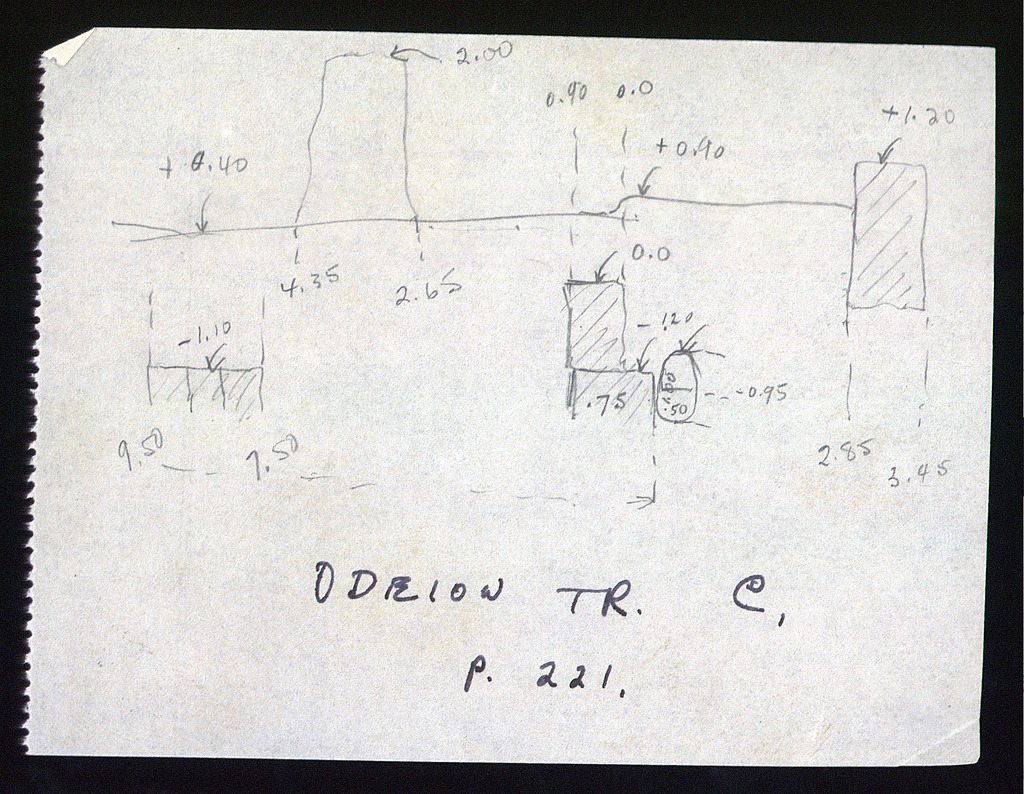 2.00
0.90 0.0
+1.20
+0.40
+0.40
0.0
4.35
2.65
-1.10
-1.20
.75
.50
-0.95
9.50
7.50
2.85
3.45
ODEION TR. C,
P. 221.